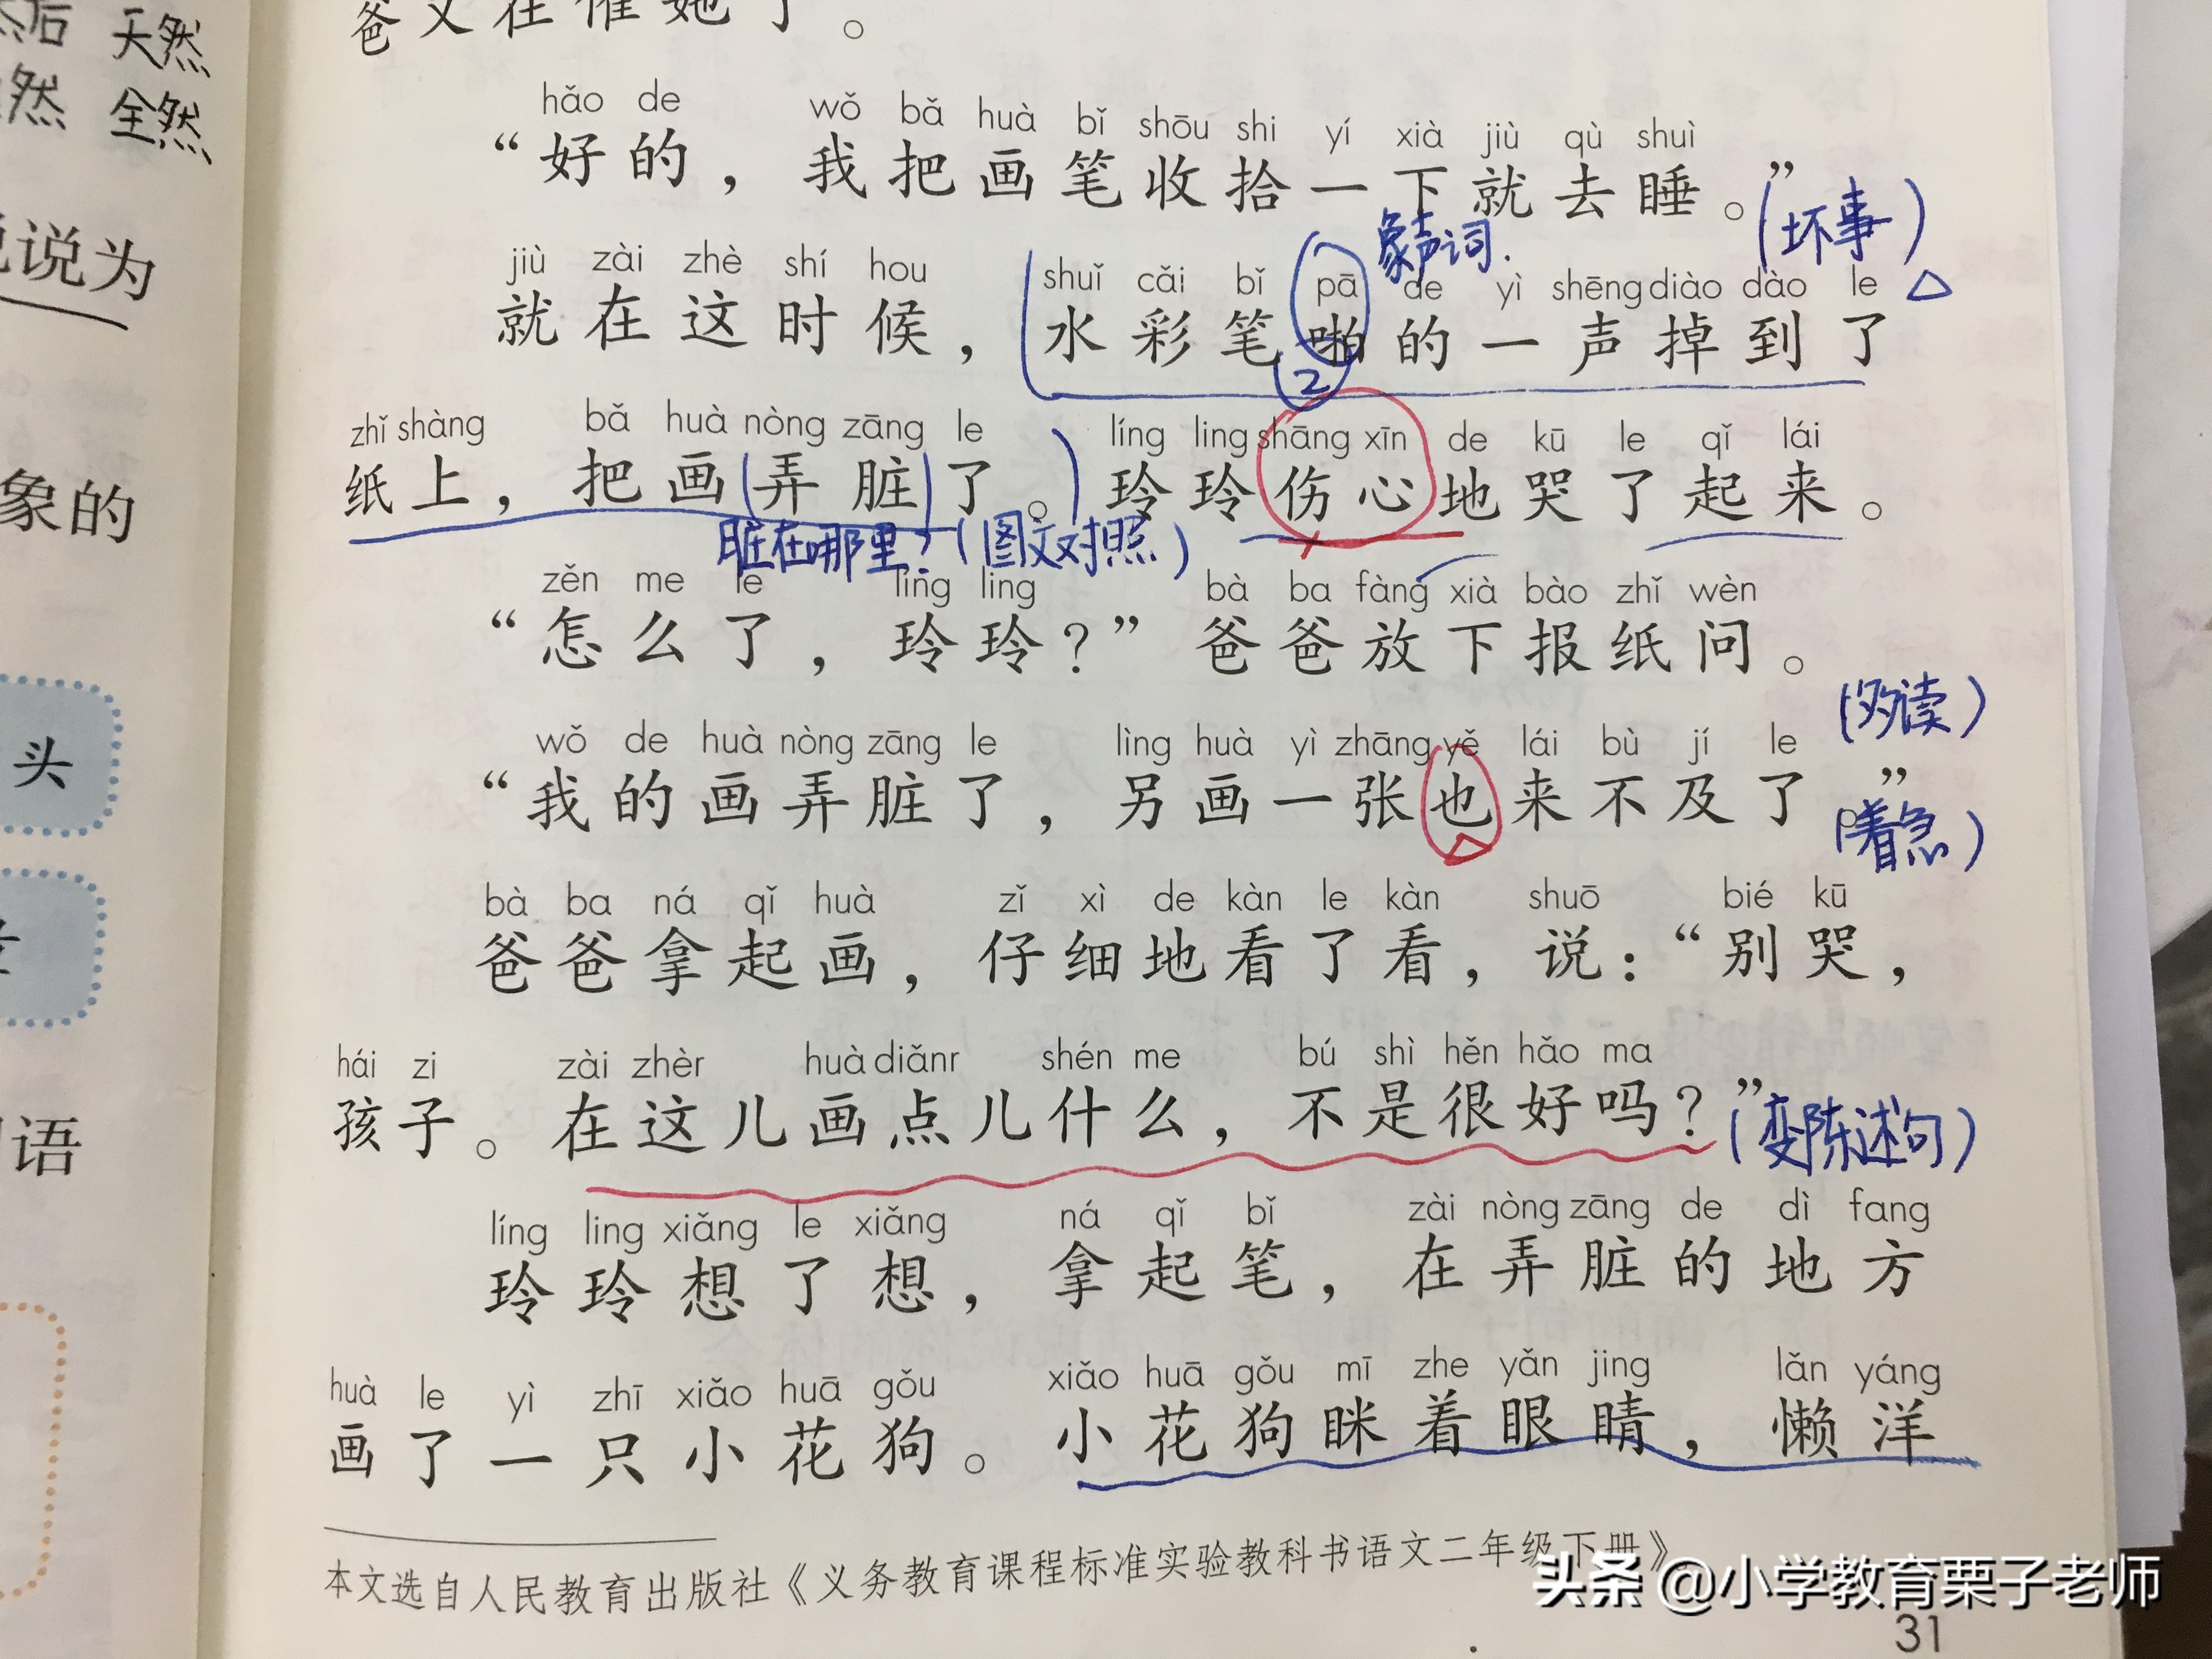 然后 天然
然 全然
说说为
象的
头
语
爸又在催她了。
hǎo de wǒ bǎ huà bǐ shōu shi yí xià jiù qù shuì
“好的，我把画笔收拾一下就去睡。”
(坏事)
象声词.
jiù zài zhè shí hou shuǐ cǎi bǐ pā de yì shēng diào dào le
就在这时候，水彩笔啪的一声掉到了
2
zhǐ shàng bǎ huà nòng zāng le líng ling shāng xīn de kū le qǐ lái
纸上，把画(弄脏)了。玲玲伤心地哭了起来。
脏在哪里?(图文对照)
zěn me le líng ling bà ba fàng xià bào zhǐ wèn
“怎么了，玲玲？”爸爸放下报纸问。
(多读)
wǒ de huà nòng zāng le lìng huà yì zhāng yě lái bù jí le
“我的画弄脏了，另画一张也来不及了。”
(着急)
bà ba ná qǐ huà zǐ xì de kàn le kàn shuō bié kū
爸爸拿起画，仔细地看了看，说：“别哭，
hái zi zài zhèr huà diǎnr shén me bú shì hěn hǎo ma
孩子。在这儿画点儿什么，不是很好吗？”
(变陈述句)
líng ling xiǎng le xiǎng ná qǐ bǐ zài nòng zāng de dì fang
玲玲想了想，拿起笔，在弄脏的地方
huà le yì zhī xiǎo huā gǒu xiǎo huā gǒu mī zhe yǎn jing lǎn yáng
画了一只小花狗。小花狗眯着眼睛，懒洋
本文选自人民教育出版社《义务教育课程标准实验教科书语文二年级下册》
头条 @小学教育栗子老师
31